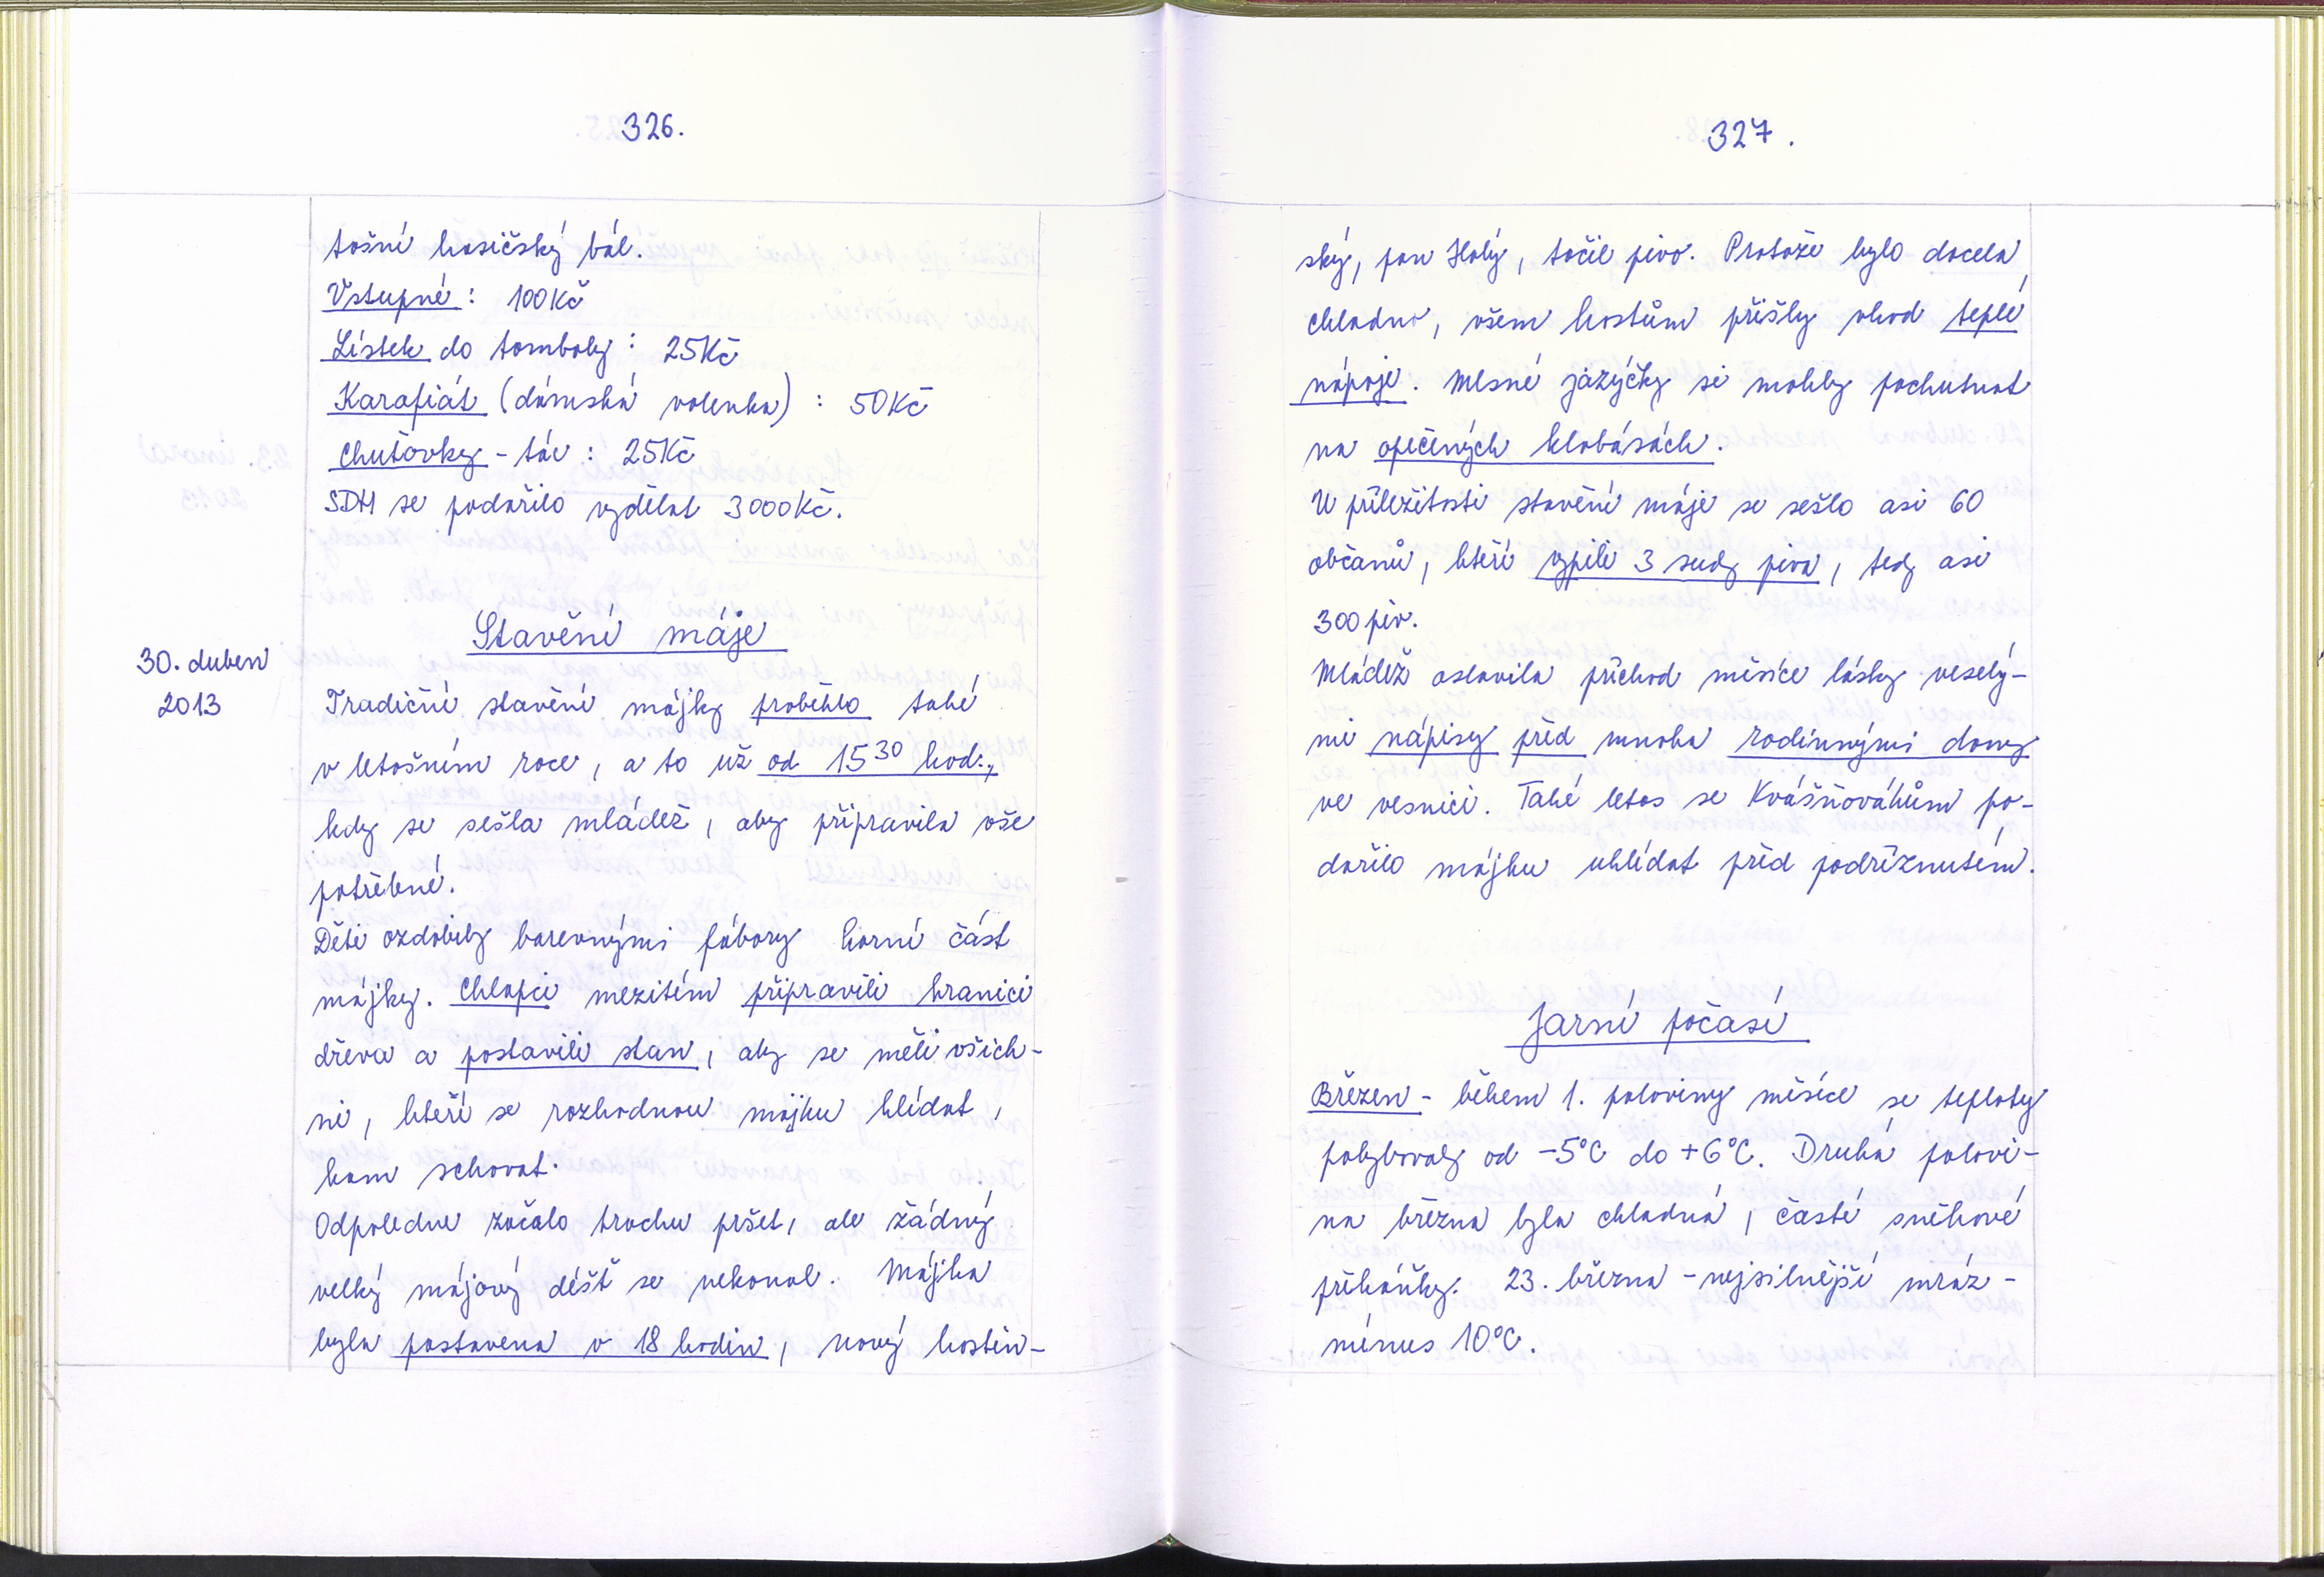 326.
tošní hasičský bál.
Vstupné: 100Kč
Lístek do tomboly: 25Kč
Karafiát (dámská volenka): 50Kč
Chuťovky - tác: 25Kč
SDH se podařilo vydělat 3000Kč.
Stavění máje
30. duben
2013
Tradiční stavění májky proběhlo také
v letošním roce, a to už od 15³⁰ hod.,
kdy se sešla mládež, aby připravila vše
potřebné.
Děti ozdobily barevnými fábory horní část
májky. Chlapci mezitím připravili hranici
dřeva a postavili stan, aby se měli všich-
ni, kteří se rozhodnou májku hlídat,
kam schovat.
Odpoledne začalo trochu pršet, ale žádný
velký májový déšť se nekonal. Májka
byla postavena v 18 hodin, nový hostin-
327.
ský, pan Holý, točil pivo. Protože bylo docela
chladno, všem hostům přišly vhod teplé
nápoje. Mlsné jazýčky si mohly pochutnat
na opečených klobásách.
U příležitosti stavění máje se sešlo asi 60
občanů, kteří vypili 3 sudy piva, tedy asi
300 piv.
Mládež oslavila příchod měsíce lásky veselý-
mi nápisy před mnoha rodinnými domy
ve vesnici. Také letos se Kvášňovákům po-
dařilo májku uhlídat před podříznutím.
Jarní počasí
Březen - během 1. poloviny měsíce se teploty
pohybovaly od -5°C do +6°C. Druhá polovi-
na března byla chladná, časté sněhové
přeháňky. 23. března - nejsilnější mráz -
mínus 10°C.